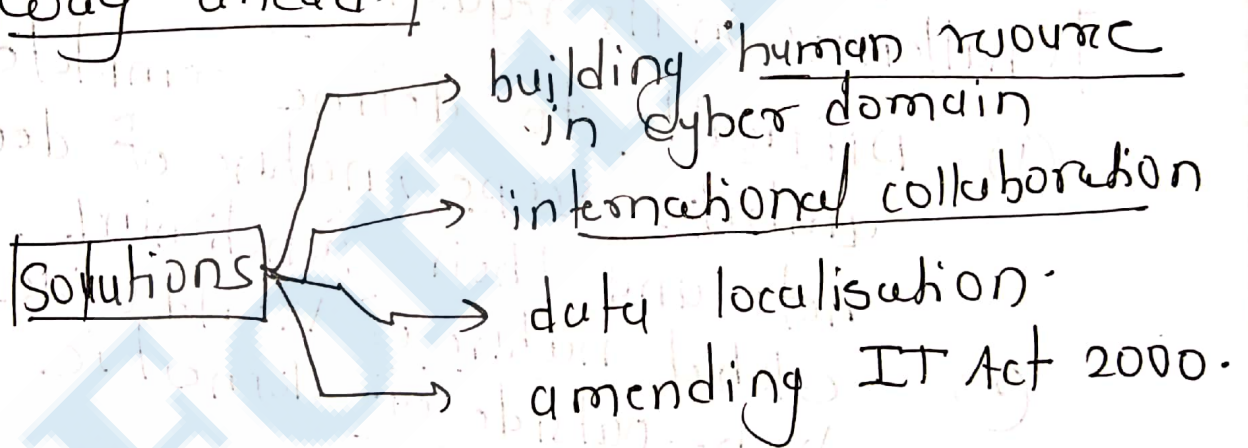 way ahead
building human resource
in cyber domain
international collaboration
Solutions
data localisation.
amending IT Act 2000.